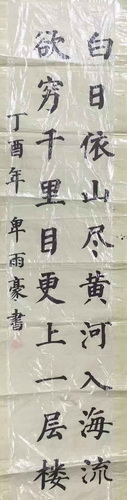 白日依山尽黄河入海流
欲穷千里目更上一层楼
丁酉年卑雨豪书